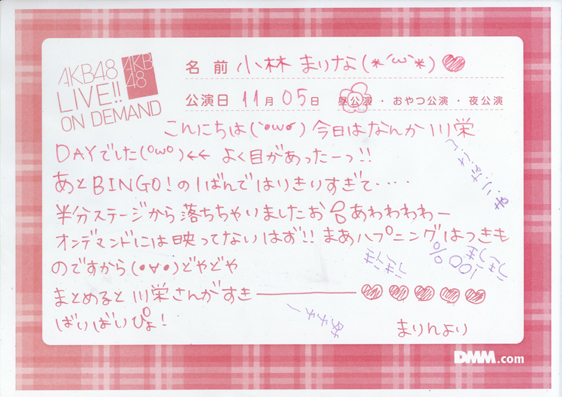 AKB48
LIVE!!
ON DEMAND
AKB
48
名 前 小林 まりな(*´ω`*)♡
公演日 11月 05日 昼公演 ・ おやつ公演 ・ 夜公演
こんにちは(°ω°) 今日はなんか川栄
DAYでした(°ω°)←← よく目があったーっ!!
あとBINGO!の1ばんではりきりすぎて・・・・
半分ステージから落ちちゃいましたお台あわわわわー
オンデマンドには映ってないはず!! まあハプニングはつきも
のですから(・∀・)どやどや
まとめると川栄さんがすき――――♡♡♡♡♡
ばいばいぴょ!
まりんより
100%
DMM.com